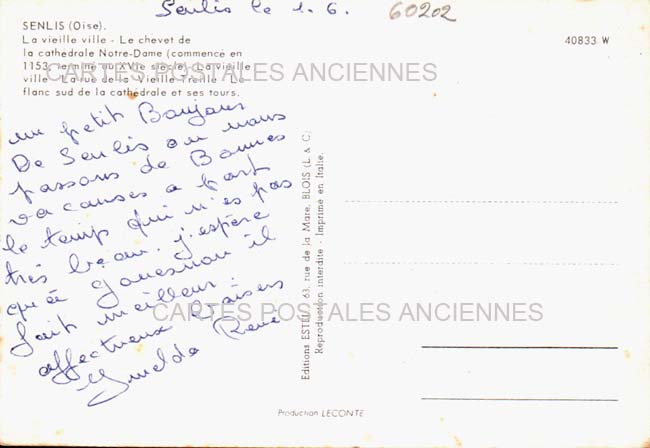 Senlis le 1.6.
60202
SENLIS (Oise).
La vieille ville - Le chevet de
la cathédrale Notre-Dame (commencé en
1153, terminé au XVIe siècle) La vieille
ville - La rue de la Vieille Treille - Le
flanc sud de la cathédrale et ses tours.
40833 W
CARTES POSTALES ANCIENNES
un petit Bonjour
De Senlis ou nous
passons de Bonnes
vacances a part
le temps qui n'es pas
très beau. j'espère
qu'é il
fait meilleur.
affectueux Baisers
René
CARTES POSTALES ANCIENNES
Editions ESTEL, 63, rue de la Mare, BLOIS (L. & C.)
Reproduction interdite - Imprimé en Italie.
Production LECONTE